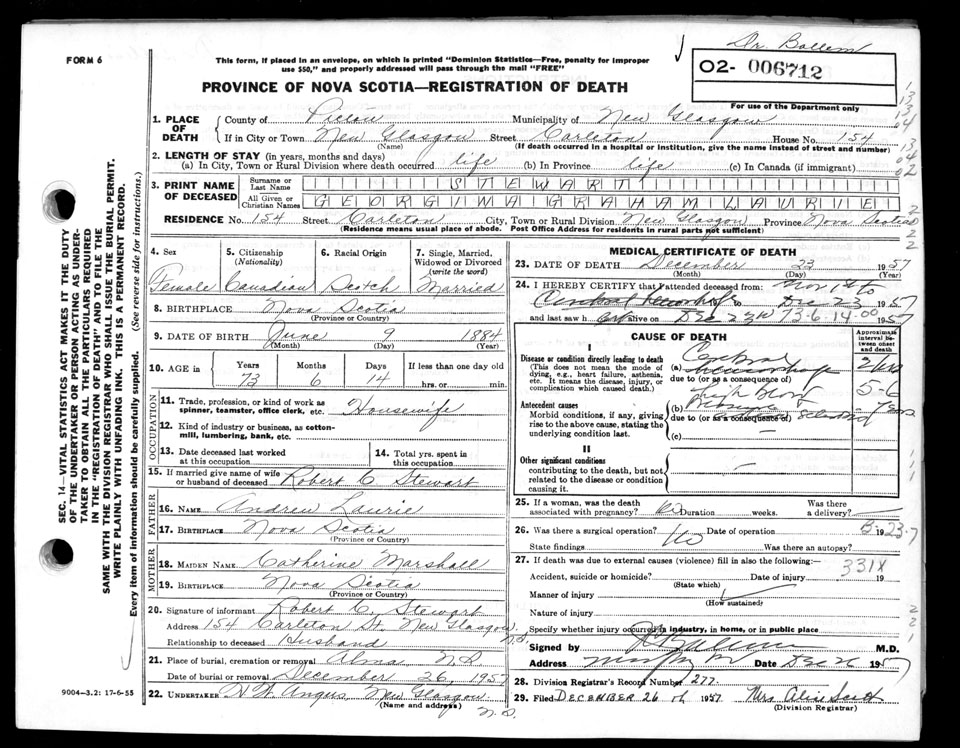 Dr. Ballem
FORM 6
This form, if placed in an envelope, on which is printed "Dominion Statistics—Free, penalty for improper
use $50," and properly addressed will pass through the mail "FREE"
02- 006712
PROVINCE OF NOVA SCOTIA—REGISTRATION OF DEATH
For use of the Department only
1. PLACE OF DEATH
County of Pictou Municipality of New Glasgow
If in City or Town New Glasgow Street Carleton House No. 154
(Name) (If death occurred in a hospital or institution, give the name instead of street and number)
2. LENGTH OF STAY (in years, months and days)
(a) In City, Town or Rural Division where death occurred life (b) In Province life (c) In Canada (if immigrant)
3. PRINT NAME OF DECEASED
Surname or Last Name STEWART
All Given or Christian Names GEORGINA GRAHAM LAURIE
RESIDENCE No. 154 Street Carleton City, Town or Rural Division New Glasgow Province Nova Scotia
(Residence means usual place of abode. Post Office Address for residents in rural parts not sufficient)
4. Sex
Female
5. Citizenship (Nationality)
Canadian
6. Racial Origin
Scotch
7. Single, Married, Widowed or Divorced (write the word)
Married
8. BIRTHPLACE Nova Scotia
(Province or Country)
9. DATE OF BIRTH June 9 1884
(Month) (Day) (Year)
10. AGE in Years Months Days If less than one day old
73 6 14 hrs. or min.
OCCUPATION
11. Trade, profession, or kind of work as
spinner, teamster, office clerk, etc. Housewife
12. Kind of industry or business, as cotton-
mill, lumbering, bank, etc.
13. Date deceased last worked
at this occupation
14. Total yrs. spent in
this occupation
15. If married give name of wife
or husband of deceased Robert C Stewart
FATHER
16. NAME Andrew Laurie
17. BIRTHPLACE Nova Scotia
(Province or Country)
MOTHER
18. MAIDEN NAME Catherine Marshall
19. BIRTHPLACE Nova Scotia
(Province or Country)
20. Signature of informant Robert C. Stewart
Address 154 Carleton St. New Glasgow N.S.
Relationship to deceased Husband
21. Place of burial, cremation or removal Alma N S
Date of burial or removal December 26, 1957
22. UNDERTAKER H W Angus, New Glasgow N.S.
(Name and address)
MEDICAL CERTIFICATE OF DEATH
23. DATE OF DEATH December 23 1957
(Month) (Day) (Year)
24. I HEREBY CERTIFY that I attended deceased from: Nov 1st to
to Dec 23 1957
and last saw h er alive on Dec 23rd 73-6-14-00 1957
CAUSE OF DEATH
Approximate interval between onset and death
I
Disease or condition directly leading to death
(This does not mean the mode of
dying, e.g., heart failure, asthenia,
etc. It means the disease, injury, or
complication which caused death.)
(a) Cerebral hemorrhage
due to (or as a consequence of)
Antecedent causes
Morbid conditions, if any, giving
rise to the above cause, stating the
underlying condition last.
(b) high blood pressure
5-6 years
due to (or as a consequence of)
(c)
II
Other significant conditions
contributing to the death, but not
related to the disease or condition
causing it.
25. If a woman, was the death
associated with pregnancy? No Duration weeks. Was there a delivery?
26. Was there a surgical operation? No Date of operation 19
State findings Was there an autopsy?
27. If death was due to external causes (violence) fill in also the following:
331X
Accident, suicide or homicide? Date of injury 19
(State which)
Manner of injury
(How sustained)
Nature of injury
Specify whether injury occurred in industry, in home, or in public place
Signed by M.D.
Address Date Dec 26 1957
28. Division Registrar's Record Number 277.
29. Filed DECEMBER 26 th 1957 Mrs Alice Scott
(Division Registrar)
SEC. 14—VITAL STATISTICS ACT MAKES IT THE DUTY
OF THE UNDERTAKER OR PERSON ACTING AS UNDER-
TAKER TO OBTAIN ALL THE PARTICULARS REQUIRED
IN THE "REGISTRATION OF DEATH" AND TO FILE THE
SAME WITH THE DIVISION REGISTRAR WHO SHALL ISSUE THE BURIAL PERMIT.
WRITE PLAINLY WITH UNFADING INK. THIS IS A PERMANENT RECORD.
Every item of information should be carefully supplied. (See reverse side for instructions.)
9004-3.2: 17-6-55